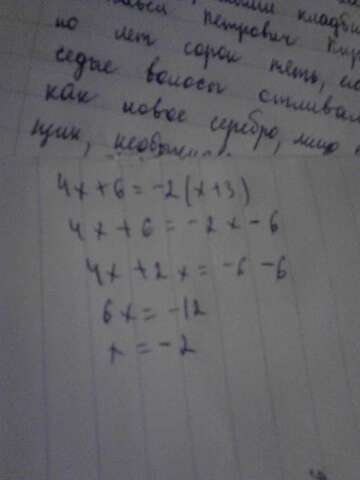 Петрович
но лет сорок пять, е
седые волосы отливал
как новое серебро, лицо
щик,
4x+6=-2(x+3)
4x+6=-2x-6
4x+2x=-6-6
6x=-12
x=-2